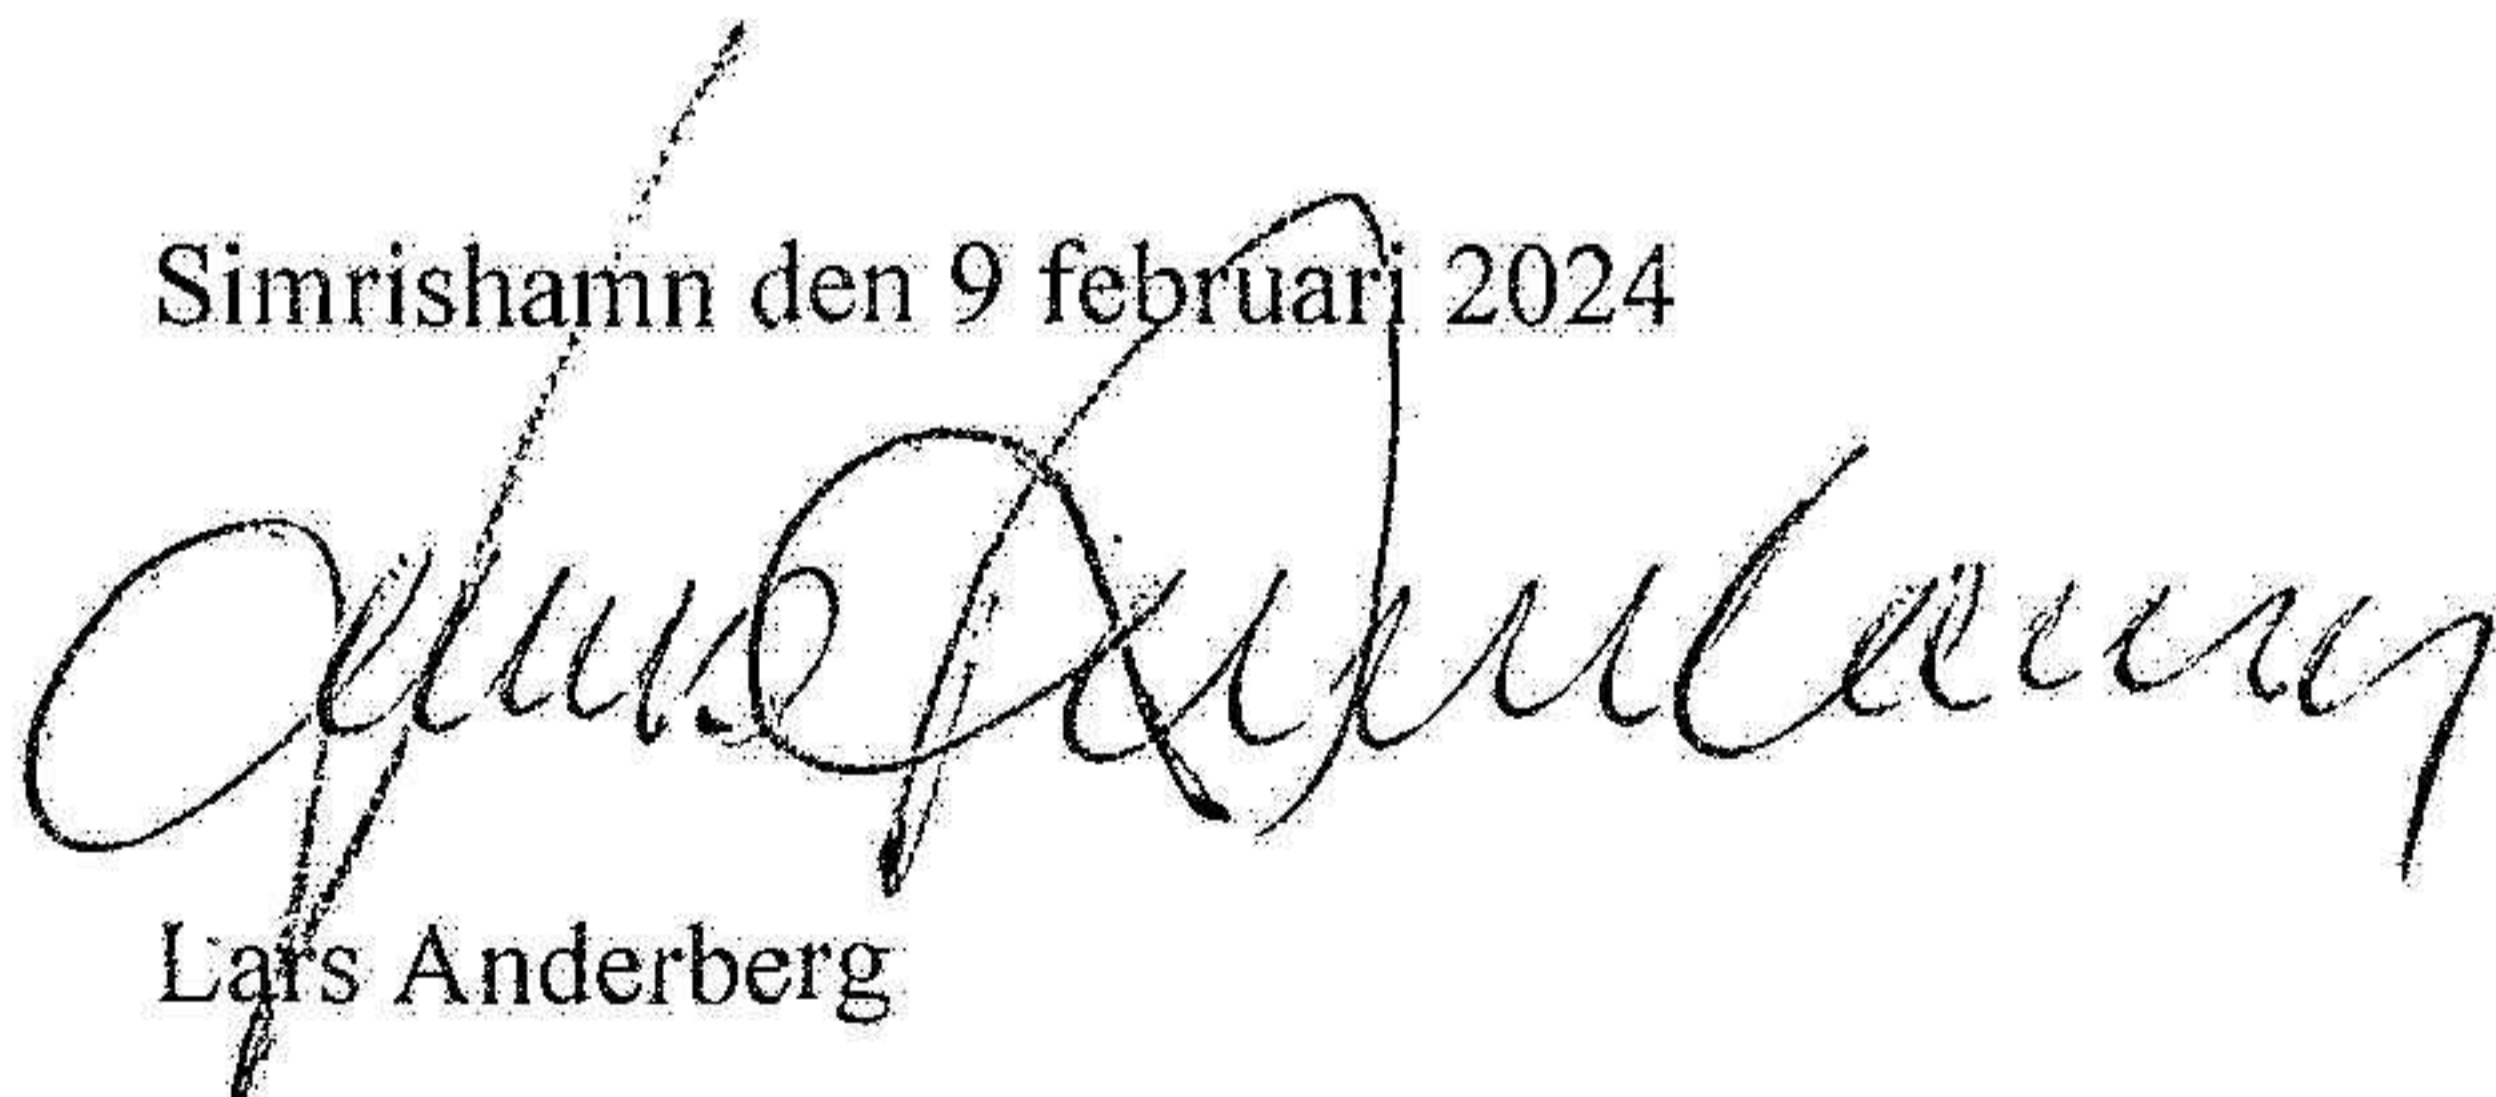 Simrishamn den 9 februari 2024
Lars Anderberg